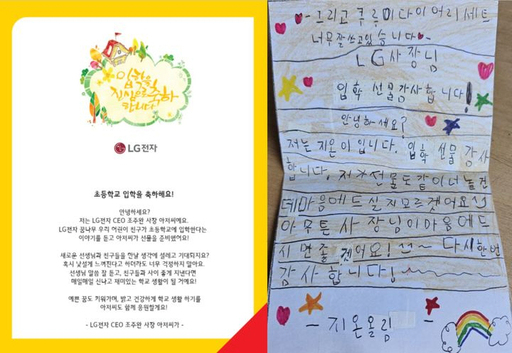 입학을
진심으로 축하
합니다!
LG전자
초등학교 입학을 축하해요!
안녕하세요?
저는 LG전자 CEO 조주완 사장 아저씨예요.
LG전자 꿈나무 우리 어린이 친구가 초등학교에 입학한다는
이야기를 듣고 아저씨가 선물을 준비했어요!
새로운 선생님과 친구들을 만날 생각에 설레고 기대되지요?
혹시 낯설게 느껴진다고 하더라도 너무 걱정하지 말아요.
선생님 말씀 잘 듣고, 친구들과 사이 좋게 지낸다면
매일매일 신나고 재미있는 학교 생활이 될 거예요!
예쁜 꿈도 키워가며, 밝고 건강하게 학교 생활 하기를
아저씨도 함께 응원할게요!
- LG전자 CEO 조주완 사장 아저씨가 -
그리고 쿠루미다이어리세트
너무잘쓰고있습니다
LG사장님
입학 선물감사합니다!
안녕하세요?
저는 지온이입니다. 입학 선물 감사
합니다. 저가선물도같이너놓건
데마음에드실지모르겟어요
아무튼 사장님이마음에드
시면좋겠어요! 다시한번
감사합니다!
- 지온올림 -